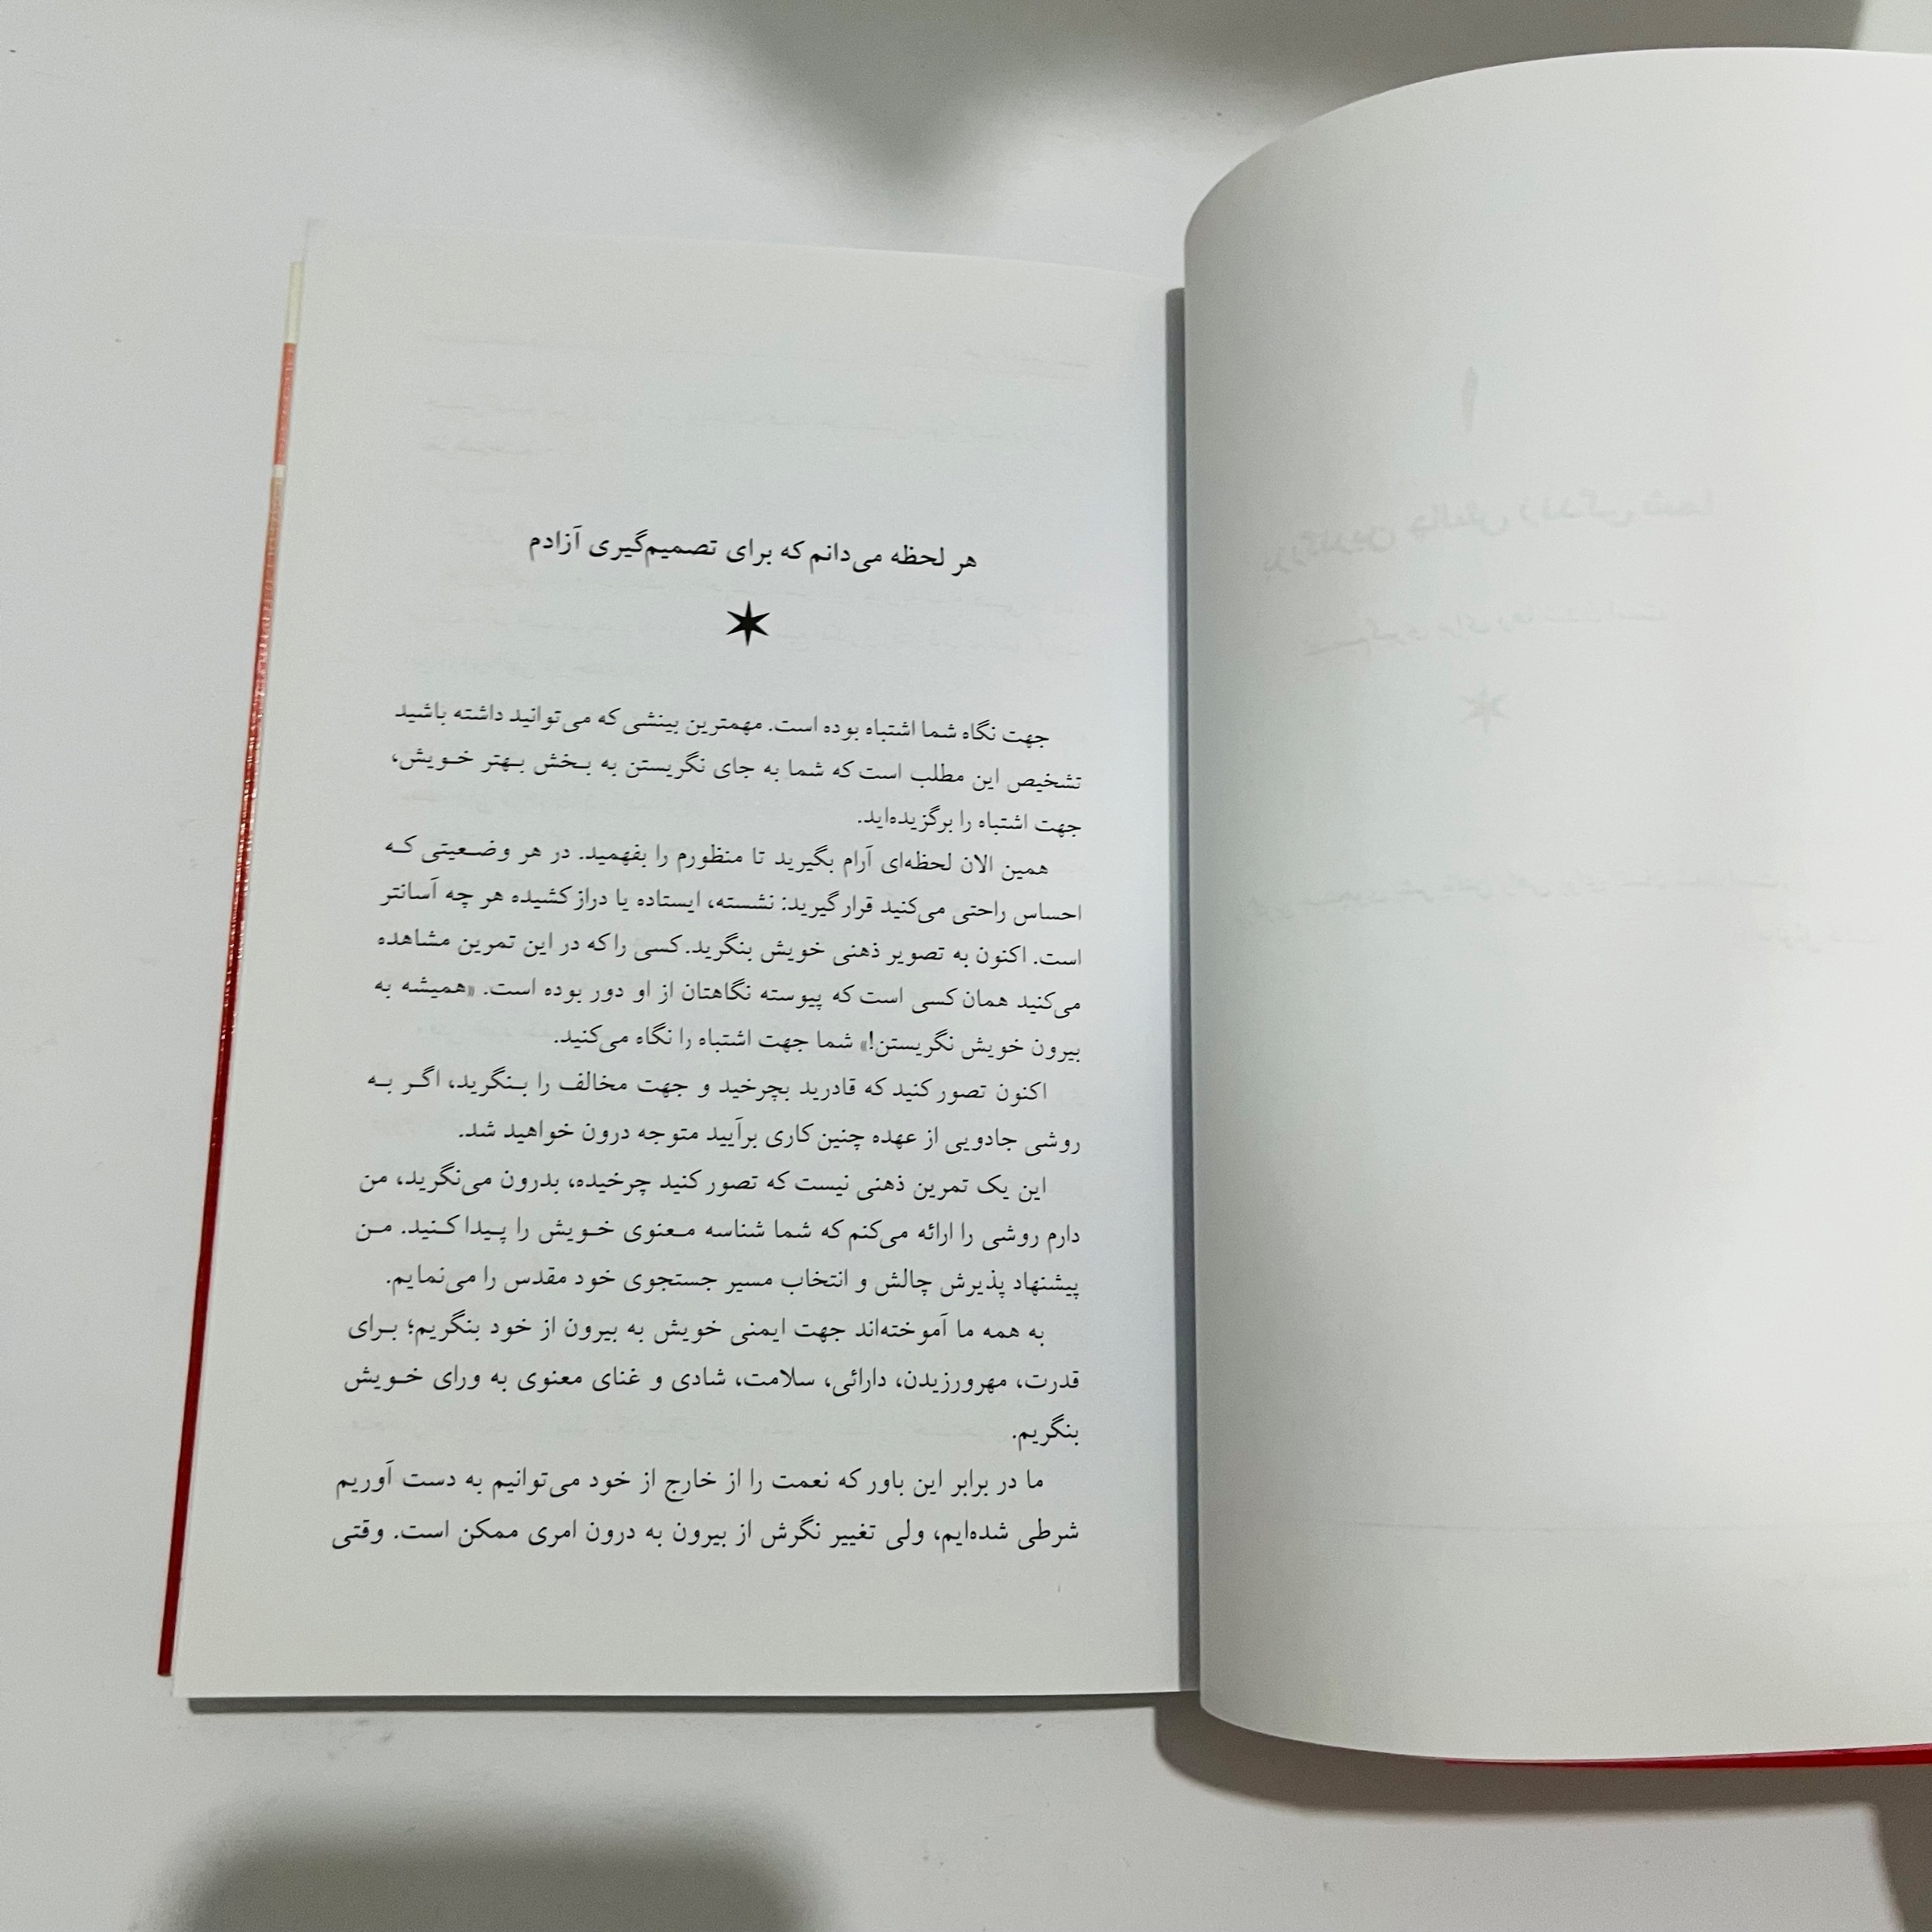 هر لحظه می‌دانم که برای تصمیم‌گیری آزادم
جهت نگاه شما اشتباه بوده است. مهمترین بینشی که می‌توانید داشته باشید
تشخیص این مطلب است که شما به جای نگریستن به بخش بهتر خویش،
جهت اشتباه را برگزیده‌اید.
همین الان لحظه‌ای آرام بگیرید تا منظورم را بفهمید. در هر وضعیتی که
احساس راحتی می‌کنید قرار گیرید: نشسته، ایستاده یا دراز کشیده هر چه آسانتر
است. اکنون به تصویر ذهنی خویش بنگرید. کسی را که در این تمرین مشاهده
می‌کنید همان کسی است که پیوسته نگاهتان از او دور بوده است. «همیشه به
بیرون خویش نگریستن!» شما جهت اشتباه را نگاه می‌کنید.
اکنون تصور کنید که قادرید بچرخید و جهت مخالف را بنگرید، اگر به
روشی جادویی از عهده چنین کاری برآیید متوجه درون خواهید شد.
این یک تمرین ذهنی نیست که تصور کنید چرخیده، بدرون می‌نگرید، من
دارم روشی را ارائه می‌کنم که شما شناسه معنوی خویش را پیدا کنید. من
پیشنهاد پذیرش چالش و انتخاب مسیر جستجوی خود مقدس را می‌نمایم.
به همه ما آموخته‌اند جهت ایمنی خویش به بیرون از خود بنگریم؛ برای
قدرت، مهرورزیدن، دارائی، سلامت، شادی و غنای معنوی به ورای خویش
بنگریم.
ما در برابر این باور که نعمت را از خارج از خود می‌توانیم به دست آوریم
شرطی شده‌ایم، ولی تغییر نگرش از بیرون به درون امری ممکن است. وقتی